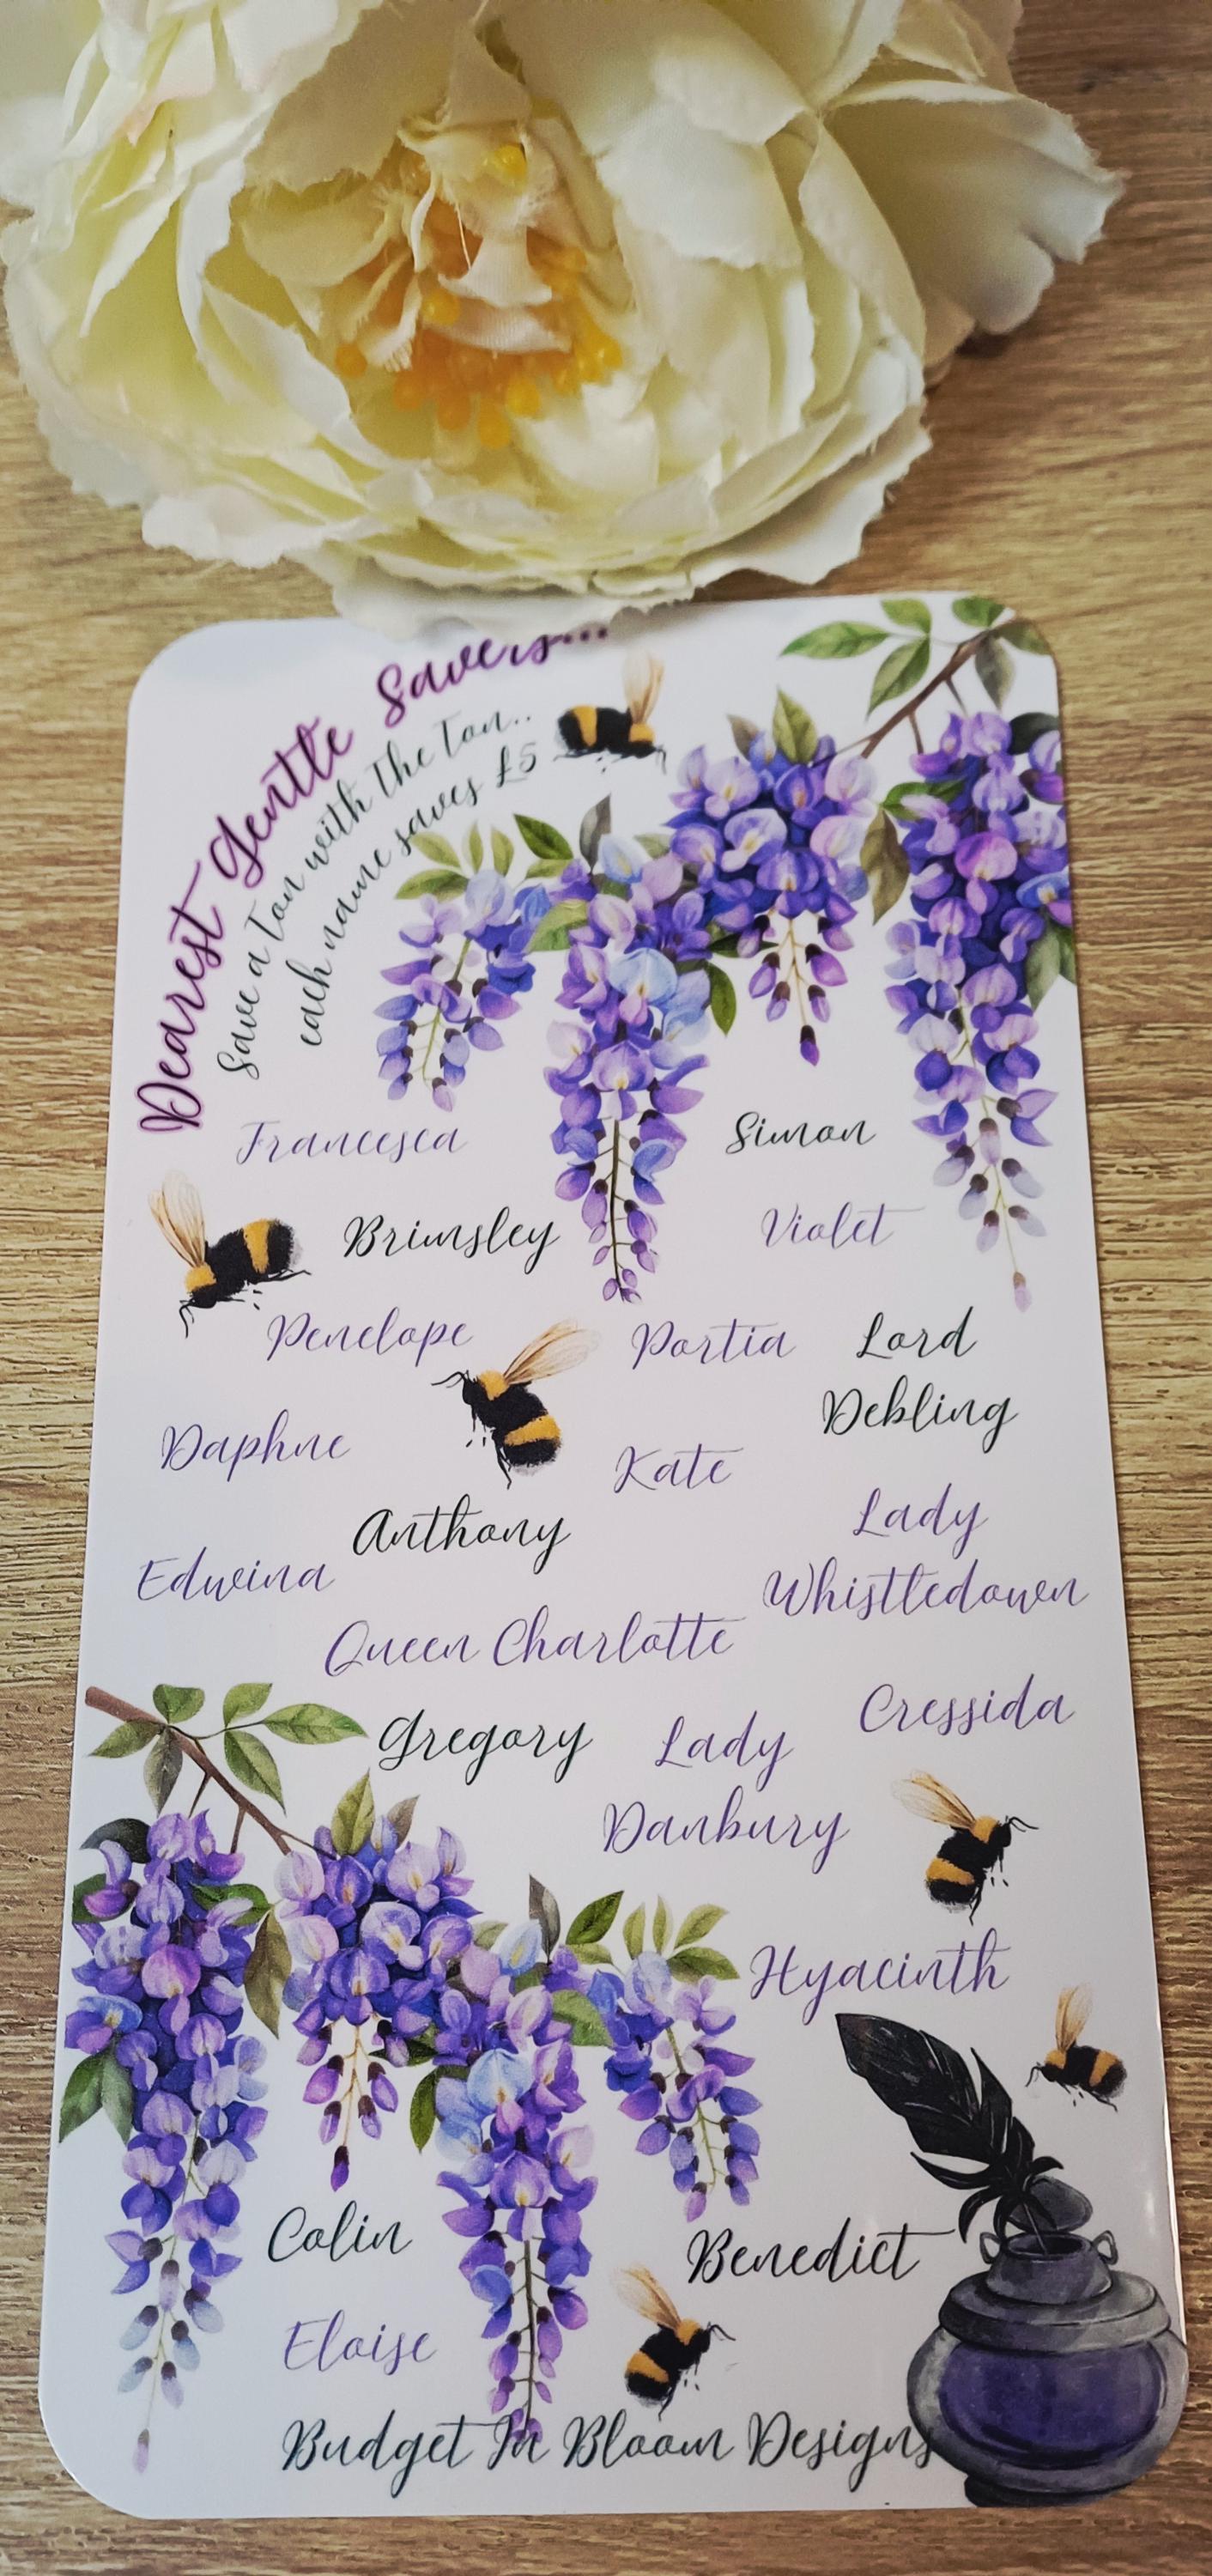 Dearest Gentle Savers...
Save a Ton with The Ton..
each name saves £5
Francesca
Simon
Brimsley
Violet
Penelope
Portia
Lord
Debling
Daphne
Kate
Anthony
Lady
Whistledown
Edwina
Queen Charlotte
Cressida
Gregory
Lady
Danbury
Hyacinth
Colin
Benedict
Eloise
Budget In Bloom Designs